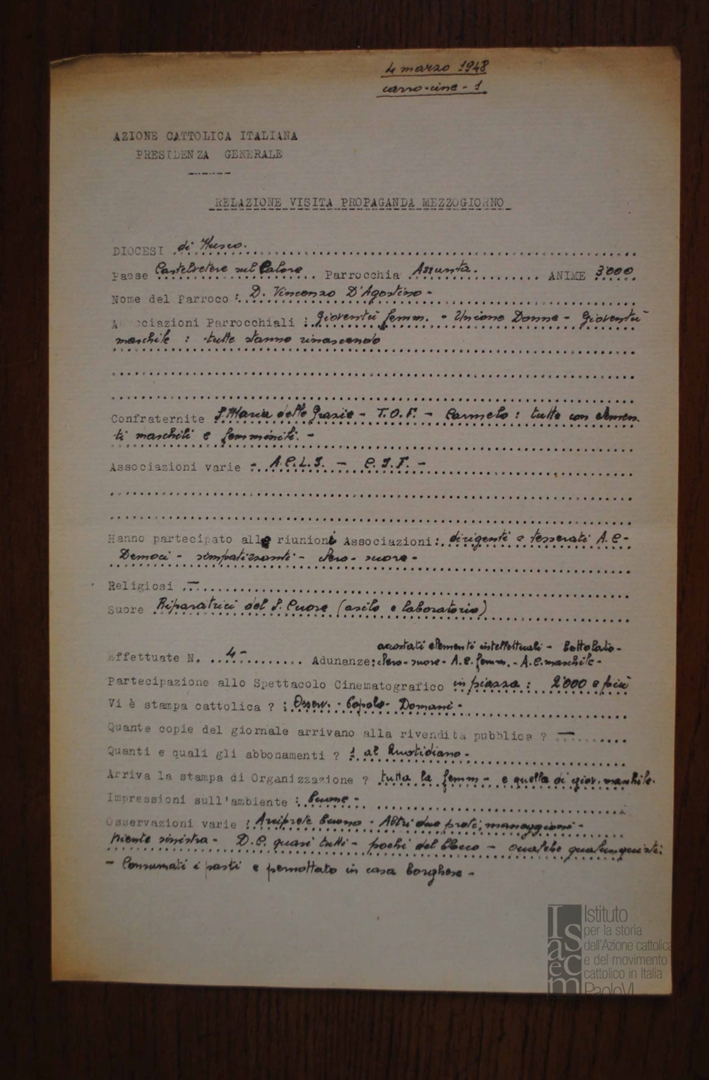 4 marzo 1948
carro-cine - 1
AZIONE CATTOLICA ITALIANA
PRESIDENZA GENERALE
RELAZIONE VISITA PROPAGANDA MEZZOGIORNO
DIOCESI di Nusco.
Paese Castelvetere sul Calore Parrocchia Assunta. ANIME 3'000
Nome del Parroco : D. Vincenzo D'Agostino -
Associazioni Parrocchiali : Gioventù femm. - Unione Donne - Gioventù
maschile : tutte stanno rinascendo
Confraternite S. Maria delle Grazie - T.O.F. - Carmelo : tutte con elemen-
ti maschili e femminili. -
Associazioni varie - A.C.L.I. - C.I.F. -
Hanno partecipato alle riunioni Associazioni: dirigenti e tesserati A.C-
Democi - simpatizzanti - clero - suore -
Religiosi -
Suore Riparatrici del S. Cuore (asilo e laboratorio)
accostati elementi intellettuali -
Effettuate N. 4 - Adunanze: clero - suore - A.C. femm. - A.C. maschile -
Partecipazione allo Spettacolo Cinematografico in piazza : 2'000 e più
Vi è stampa cattolica ? : Osserv. - Popolo - Domani -
Quante copie del giornale arrivano alla rivendita pubblica ? -
Quanti e quali gli abbonamenti ? 1 al Quotidiano -
Arriva la stampa di Organizzazione ? tutta la femm - e quella di giov. maschile.
Impressioni sull'ambiente : buone -
Osservazioni varie : Arciprete buono - Altri due preti, maneggioni -
niente sinistra - D.C. quasi tutti - pochi del blocco - qualche qualunquisti
- Consumati i pasti e pernottato in casa borghese -
Istituto
per la storia
dell'Azione cattolica
e del movimento
cattolico in Italia
PaoloVI